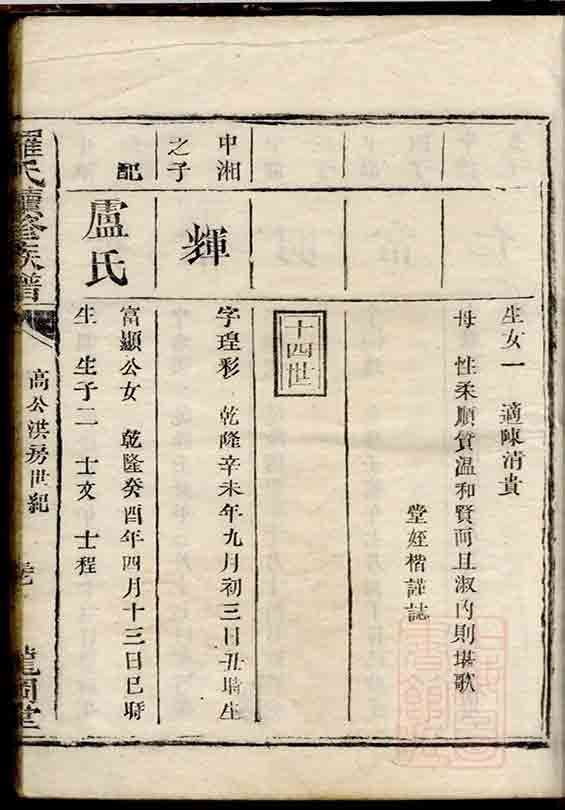 生女一 適陳清貴
母 性柔順質温和賢而且淑内則堪歌
堂姪楷謹誌
十四世
中湘之子
輝
字瑝彩 乾隆辛未年九月初三日丑時生
配
盧氏
富顯公女 乾隆癸酉年四月十三日巳時
生 生子二 士文 士程
羅氏續修族譜
高公洪房世紀
卷